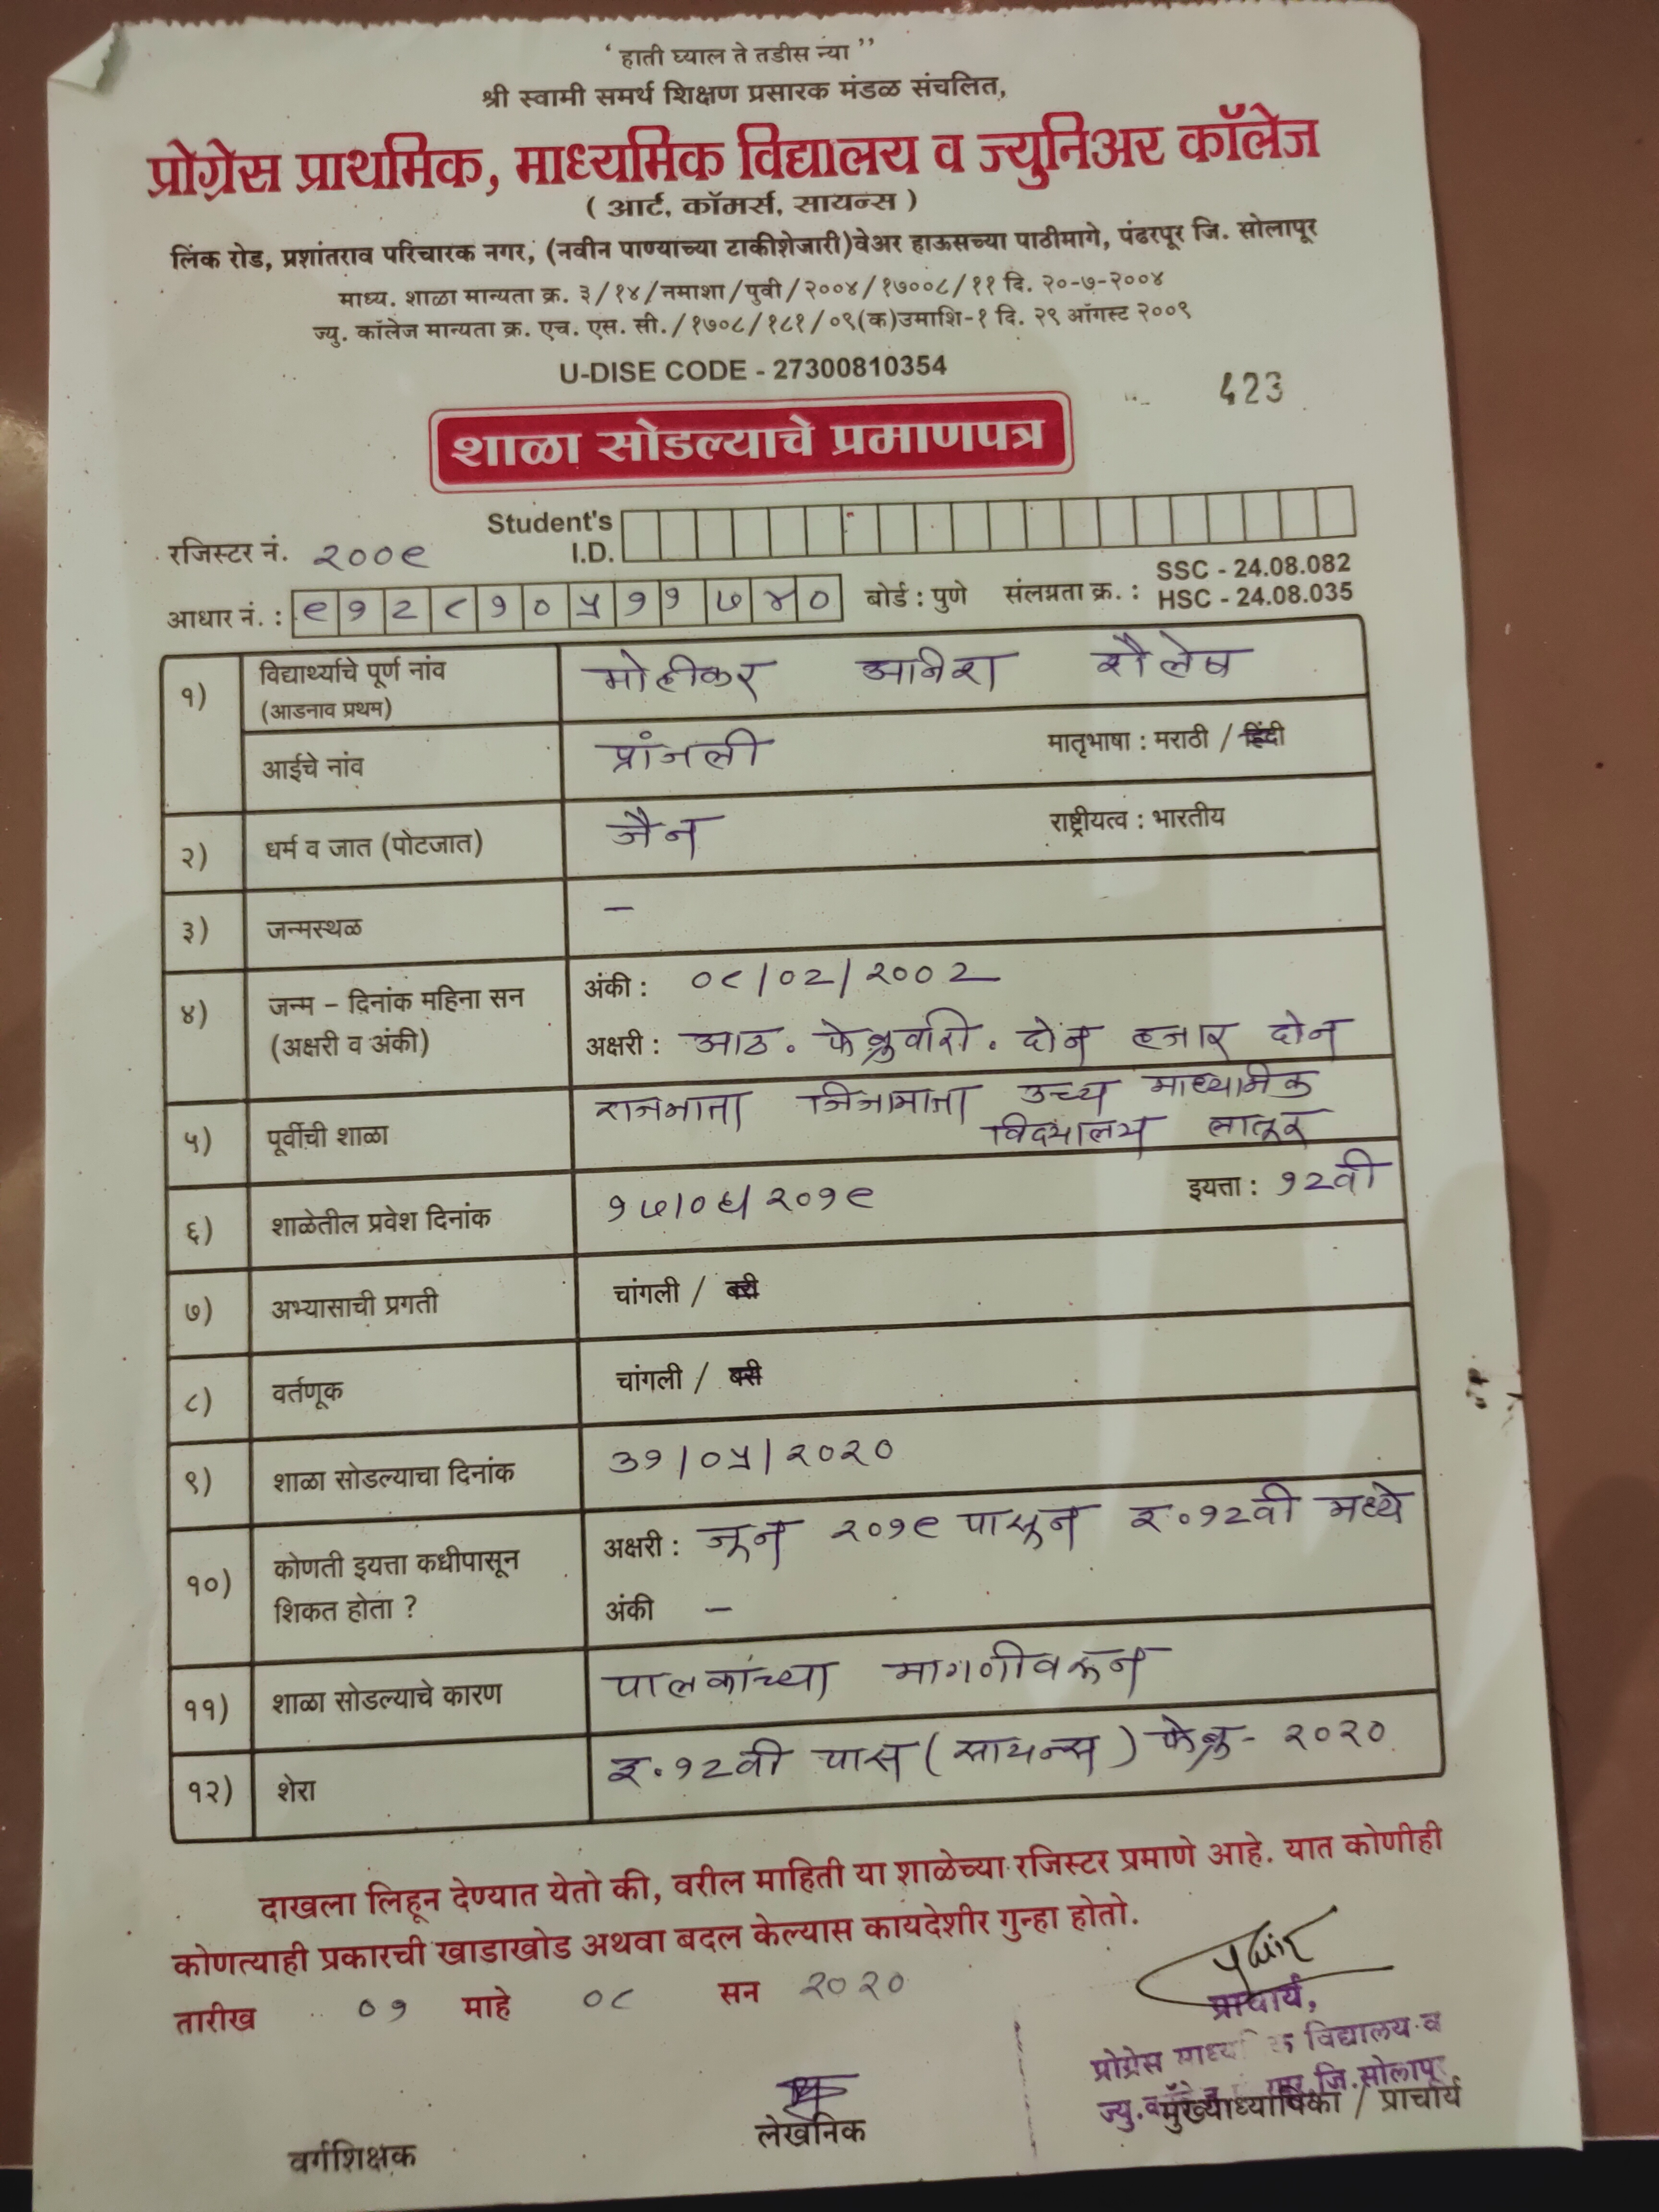 ‘ हाती घ्याल ते तडीस न्या ’’
श्री स्वामी समर्थ शिक्षण प्रसारक मंडळ संचलित,
प्रोग्रेस प्राथमिक, माध्यमिक विद्यालय व ज्युनिअर कॉलेज
( आर्ट, कॉमर्स, सायन्स )
लिंक रोड, प्रशांतराव परिचारक नगर, (नवीन पाण्याच्या टाकीशेजारी)वेअर हाऊसच्या पाठीमागे, पंढरपूर जि. सोलापूर
माध्य. शाळा मान्यता क्र. ३/१४/नमाशा/पुवी/२००४/१७००८/११ दि. २०-७-२००४
ज्यु. कॉलेज मान्यता क्र. एच. एस. सी./१७०८/१८१/०९(क)उमाशि-१ दि. २९ ऑगस्ट २००९
U-DISE CODE - 27300810354
423
शाळा सोडल्याचे प्रमाणपत्र
रजिस्टर नं. २००९ Student's I.D.
आधार नं. : ९१२८१०५११७४० बोर्ड : पुणे संलग्नता क्र. : SSC - 24.08.082
HSC - 24.08.035
१) विद्यार्थ्याचे पूर्ण नांव (आडनाव प्रथम) मोहीकर अनिश शैलेष
आईचे नांव प्रांजली मातृभाषा : मराठी / हिंदी
२) धर्म व जात (पोटजात) जैन राष्ट्रीयत्व : भारतीय
३) जन्मस्थळ –
४) जन्म – दिनांक महिना सन अंकी : ०८/०२/२००२
(अक्षरी व अंकी) अक्षरी : आठ. फेब्रुवारी. दोन हजार दोन
५) पूर्वीची शाळा राजमाता जिजामाता उच्च माध्यमिक
विद्यालय लातूर
६) शाळेतील प्रवेश दिनांक १७/०६/२०१९ इयत्ता : १२वी
७) अभ्यासाची प्रगती चांगली / बरी
८) वर्तणूक चांगली / बरी
९) शाळा सोडल्याचा दिनांक ३१/०५/२०२०
१०) कोणती इयत्ता कधीपासून अक्षरी : जून २०१९ पासून इ.१२वी मध्ये
शिकत होता ? अंकी –
११) शाळा सोडल्याचे कारण पालकांच्या मागणीवरून
१२) शेरा इ.१२वी पास (सायन्स) फेब्रु- २०२०
दाखला लिहून देण्यात येतो की, वरील माहिती या शाळेच्या रजिस्टर प्रमाणे आहे. यात कोणीही
कोणत्याही प्रकारची खाडाखोड अथवा बदल केल्यास कायदेशीर गुन्हा होतो.
तारीख ०१ माहे ०८ सन २०२०
प्राचार्य,
प्रोग्रेस विद्यालय व
जि.सोलापूर
वर्गशिक्षक लेखनिक मुख्याध्यापिका / प्राचार्य